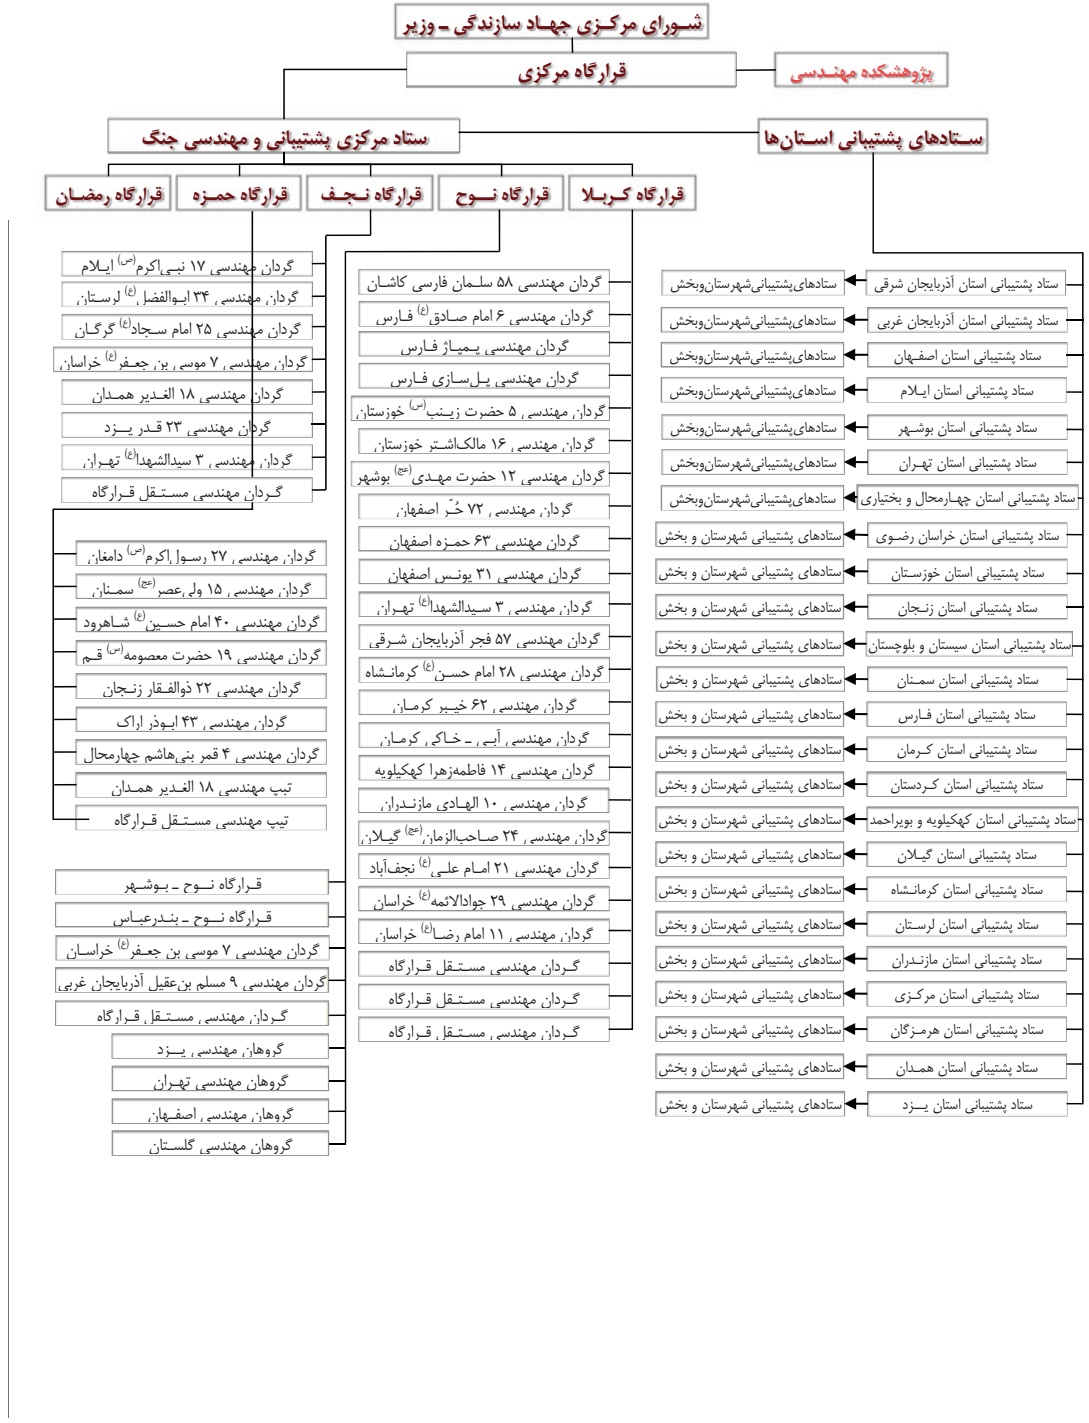 شورای مرکزی جهاد سازندگی ـ وزیر
قرارگاه مرکزی
پژوهشکده مهندسی
ستادهای پشتیبانی استان‌ها
ستاد مرکزی پشتیبانی و مهندسی جنگ
قرارگاه کربلا
قرارگاه نوح
قرارگاه نجف
قرارگاه حمزه
قرارگاه رمضان
ستاد پشتیبانی استان آذربایجان شرقی
ستادهای پشتیبانی شهرستان و بخش
ستاد پشتیبانی استان آذربایجان غربی
ستادهای پشتیبانی شهرستان و بخش
ستاد پشتیبانی استان اصفهان
ستادهای پشتیبانی شهرستان و بخش
ستاد پشتیبانی استان ایلام
ستادهای پشتیبانی شهرستان و بخش
ستاد پشتیبانی استان بوشهر
ستادهای پشتیبانی شهرستان و بخش
ستاد پشتیبانی استان تهران
ستادهای پشتیبانی شهرستان و بخش
ستاد پشتیبانی استان چهارمحال و بختیاری
ستادهای پشتیبانی شهرستان و بخش
ستاد پشتیبانی استان خراسان رضوی
ستادهای پشتیبانی شهرستان و بخش
ستاد پشتیبانی استان خوزستان
ستادهای پشتیبانی شهرستان و بخش
ستاد پشتیبانی استان زنجان
ستادهای پشتیبانی شهرستان و بخش
ستاد پشتیبانی استان سیستان و بلوچستان
ستادهای پشتیبانی شهرستان و بخش
ستاد پشتیبانی استان سمنان
ستادهای پشتیبانی شهرستان و بخش
ستاد پشتیبانی استان فارس
ستادهای پشتیبانی شهرستان و بخش
ستاد پشتیبانی استان کرمان
ستادهای پشتیبانی شهرستان و بخش
ستاد پشتیبانی استان کردستان
ستادهای پشتیبانی شهرستان و بخش
ستاد پشتیبانی استان کهکیلویه و بویراحمد
ستادهای پشتیبانی شهرستان و بخش
ستاد پشتیبانی استان گیلان
ستادهای پشتیبانی شهرستان و بخش
ستاد پشتیبانی استان کرمانشاه
ستادهای پشتیبانی شهرستان و بخش
ستاد پشتیبانی استان لرستان
ستادهای پشتیبانی شهرستان و بخش
ستاد پشتیبانی استان مازندران
ستادهای پشتیبانی شهرستان و بخش
ستاد پشتیبانی استان مرکزی
ستادهای پشتیبانی شهرستان و بخش
ستاد پشتیبانی استان هرمزگان
ستادهای پشتیبانی شهرستان و بخش
ستاد پشتیبانی استان همدان
ستادهای پشتیبانی شهرستان و بخش
ستاد پشتیبانی استان یزد
ستادهای پشتیبانی شهرستان و بخش
گردان مهندسی ۵۸ سلمان فارسی کاشان
گردان مهندسی ۶ امام صادق(ع) فارس
گردان مهندسی پمپاژ فارس
گردان مهندسی پل‌سازی فارس
گردان مهندسی ۵ حضرت زینب(س) خوزستان
گردان مهندسی ۱۶ مالک‌اشتر خوزستان
گردان مهندسی ۱۲ حضرت مهدی(عج) بوشهر
گردان مهندسی ۷۲ حُرّ اصفهان
گردان مهندسی ۶۳ حمزه اصفهان
گردان مهندسی ۳۱ یونس اصفهان
گردان مهندسی ۳ سیدالشهدا(ع) تهران
گردان مهندسی ۵۷ فجر آذربایجان شرقی
گردان مهندسی ۲۸ امام حسن(ع) کرمانشاه
گردان مهندسی ۶۲ خیبر کرمان
گردان مهندسی آبی ـ خاکی کرمان
گردان مهندسی ۱۴ فاطمه‌زهرا کهکیلویه
گردان مهندسی ۱۰ الهادی مازندران
گردان مهندسی ۲۴ صاحب‌الزمان(عج) گیلان
گردان مهندسی ۲۱ امام علی(ع) نجف‌آباد
گردان مهندسی ۲۹ جوادالائمه(ع) خراسان
گردان مهندسی ۱۱ امام رضا(ع) خراسان
گردان مهندسی مستقل قرارگاه
گردان مهندسی مستقل قرارگاه
گردان مهندسی مستقل قرارگاه
گردان مهندسی ۱۷ نبی‌اکرم(ص) ایلام
گردان مهندسی ۳۴ ابوالفضل(ع) لرستان
گردان مهندسی ۲۵ امام سجاد(ع) گرگان
گردان مهندسی ۷ موسی بن جعفر(ع) خراسان
گردان مهندسی ۱۸ الغدیر همدان
گردان مهندسی ۲۳ قدر یزد
گردان مهندسی ۳ سیدالشهدا(ع) تهران
گردان مهندسی مستقل قرارگاه
گردان مهندسی ۲۷ رسول‌اکرم(ص) دامغان
گردان مهندسی ۱۵ ولی‌عصر(عج) سمنان
گردان مهندسی ۴۰ امام حسین(ع) شاهرود
گردان مهندسی ۱۹ حضرت معصومه(س) قم
گردان مهندسی ۲۲ ذوالفقار زنجان
گردان مهندسی ۴۳ ابوذر اراک
گردان مهندسی ۴ قمر بنی‌هاشم چهارمحال
تیپ مهندسی ۱۸ الغدیر همدان
تیپ مهندسی مستقل قرارگاه
قرارگاه نوح ـ بوشهر
قرارگاه نوح ـ بندرعباس
گردان مهندسی ۷ موسی بن جعفر(ع) خراسان
گردان مهندسی ۹ مسلم بن‌عقیل آذربایجان غربی
گردان مهندسی مستقل قرارگاه
گروهان مهندسی یزد
گروهان مهندسی تهران
گروهان مهندسی اصفهان
گروهان مهندسی گلستان